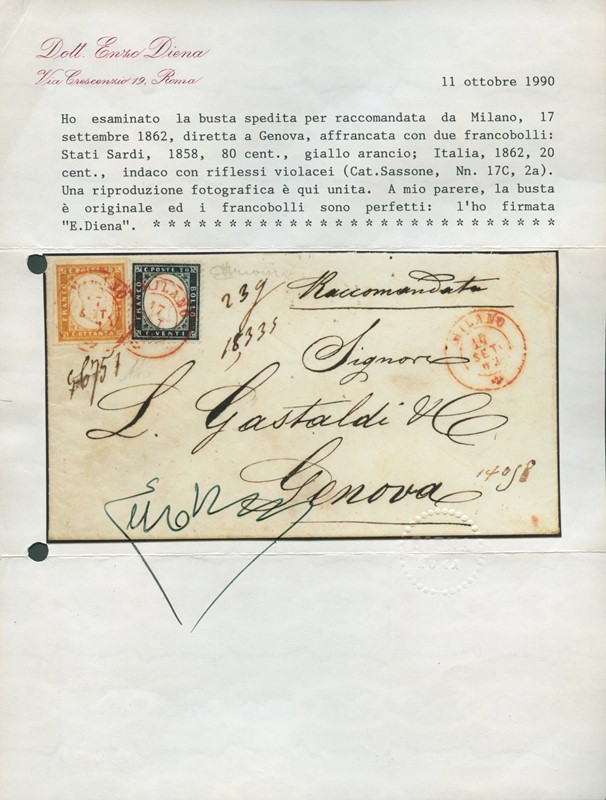 Dott. Enzo Diena
Via Crescenzio 19, Roma
11 ottobre 1990
Ho esaminato la busta spedita per raccomandata da Milano, 17
settembre 1862, diretta a Genova, affrancata con due francobolli:
Stati Sardi, 1858, 80 cent., giallo arancio; Italia, 1862, 20
cent., indaco con riflessi violacei (Cat.Sassone, Nn. 17C, 2a).
Una riproduzione fotografica è qui unita. A mio parere, la busta
è originale ed i francobolli sono perfetti: l'ho firmata
"E.Diena". * * * * * * * * * * * * * * * * * * * * * * * * * * *
C. POSTE 20
FRANCO
BOLLO
C. VENTI
239
Raccomandata
18335
MILANO
SET.
62
Signore
L. Gastaldi & C
Genova